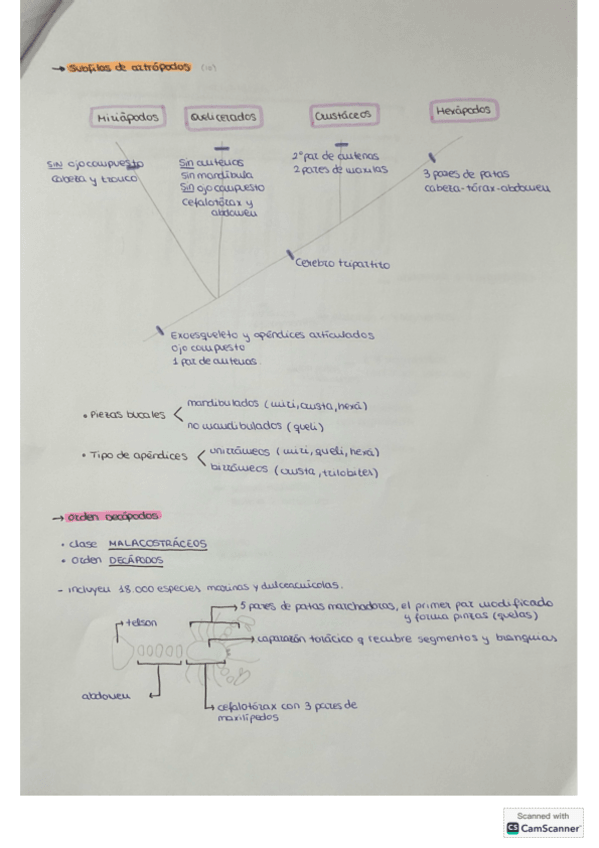 → Subfilos de artrópodos (10)
Miriápodos Quelicerados Crustáceos Hexápodos
SIN ojo compuesto
cabeza y tronco
Sin antenas
sin mandíbula
Sin ojo compuesto
cefalotórax y
abdomen
2º par de antenas
2 pares de maxilas
3 pares de patas
cabeza-tórax-abdomen
cerebro tripartito
Exoesqueleto y apéndices articulados
ojo compuesto
1 par de antenas.
• Piezas bucales
mandibulados (miri, crusta, hexá)
no mandibulados (queli)
• Tipo de apéndices
unirrámeos (miri, queli, hexá)
birrámeos (crusta, trilobites)
→ Orden Decápodos
• clase MALACOSTRÁCEOS
• orden DECÁPODOS
- incluyen 18.000 especies marinas y dulceacuícolas.
5 pares de patas marchadoras, el primer par modificado
y forma pinzas (quelas)
telson
caparazón torácico q recubre segmentos y branquias
abdomen
cefalotórax con 3 pares de
maxilípedos
Scanned with
CS CamScanner